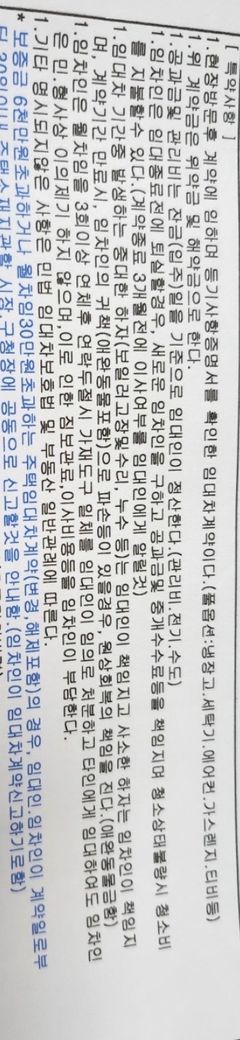 [ 특약사항 ]
1.현장방문후 계약에 임하며 등기사항증명서를 확인한 임대차계약이다.(풀옵션:냉장고.세탁기.에어컨.가스렌지.티비등)
1.위 계약금은 위약금 및 해약금으로 한다.
1.공과금및 관리비는 잔금(입주)일을 기준으로 임대인이 정산한다.(관리비.전기.수도)
1.임차인은 임대종료전에 퇴실할경우, 새로운 임차인을 구하고 공과금및 중개수수료등을 책임지며 청소상태불량시 청소비
를 지불할수 있다.(계약종료 3개월전에 이사여부를 임대인에게 알릴것)
1.임대차 기간중 발생하는 중대한 하자(보일러고장및수리, 누수 등)는 임대인이 책임지고 사소한 하자는 임차인이 책임지
며, 계약기간 만료시, 임차인의 귀책(애완동물포함)으로 파손등이 있을경우, 원상회복의 책임을 진다.(애완동물금함)
1.임차인은 월차임을 3회이상 연체후 연락두절시 가재도구 일체를 임대인이 임의로 처분하고 타인에게 임대하여도 임차인
은 민.형사상 이의제기 하지 않으며,이로 인한 짐보관료,이사비용등을 임차인이 부담한다.
1.기타 명시되지않은 사항은 민법 임대차보호법 및 부동산 일반관례에 따른다.
* 보증금 6천만원초과하거나 월차임30만원초과하는 주택임대차계약(변경,해제포함)의 경우, 임대인,임차인이 계약일로부
터 30일이내 주택소재지관할 시장,구청장에 공동으로 신고할것을 안내함.(임차인이 임대차계약신고하기로함)